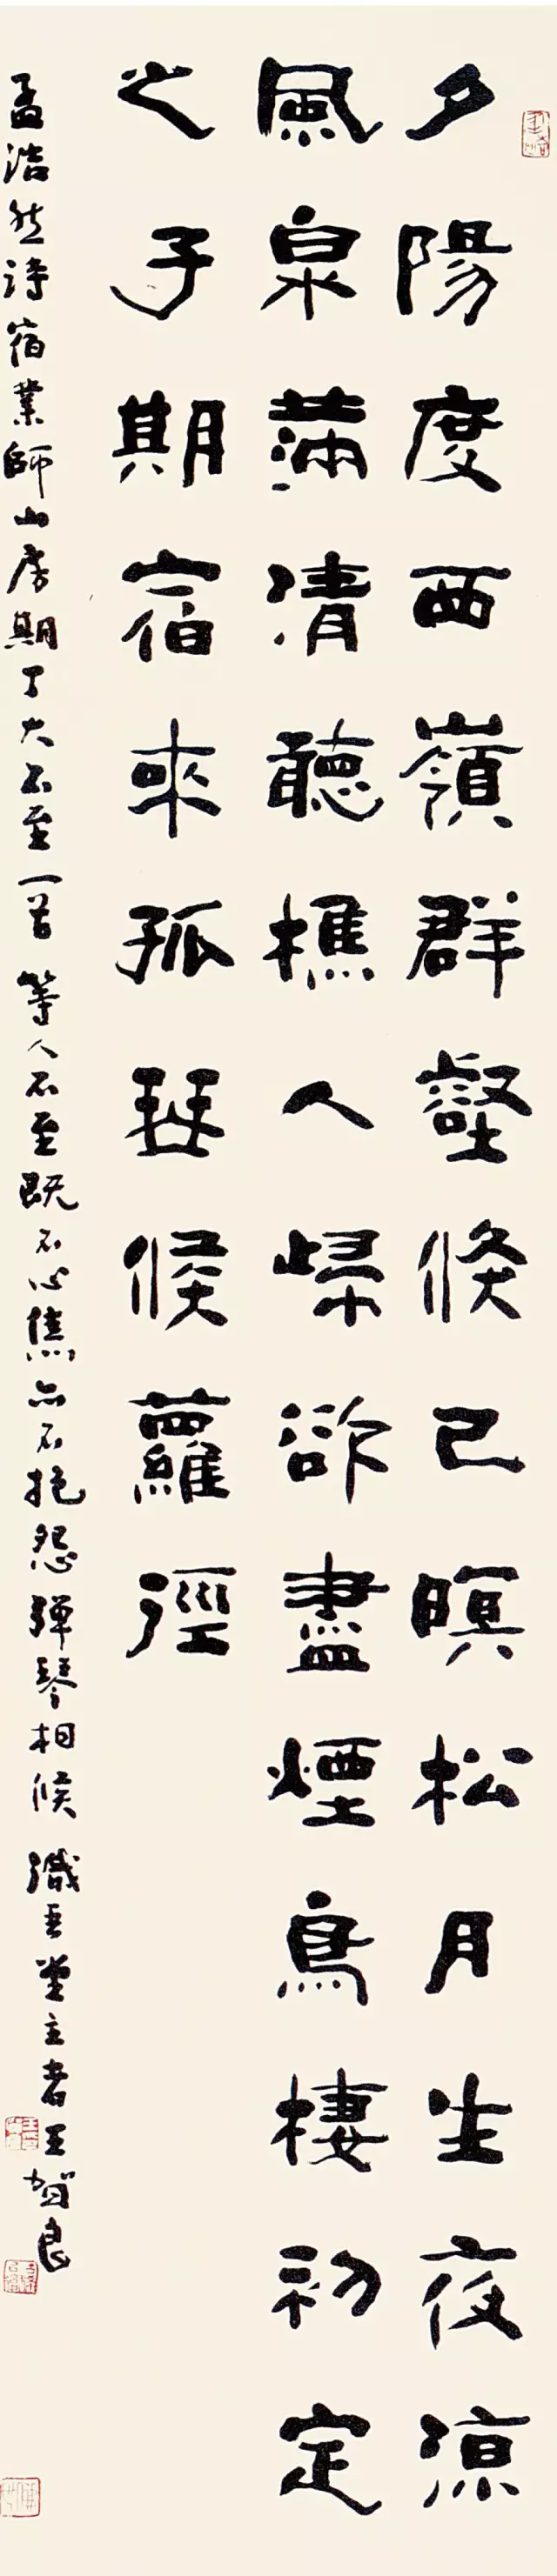 夕陽度西嶺群壑倏已暝松月生夜涼
風泉滿清聽樵人歸欲盡煙鳥棲初定
之子期宿來孤琴候蘿徑
孟浩然詩宿業師山房期丁大不至一首 等人不至既不心焦亦不抱怨彈琴相候 識吾堂主者王賀良